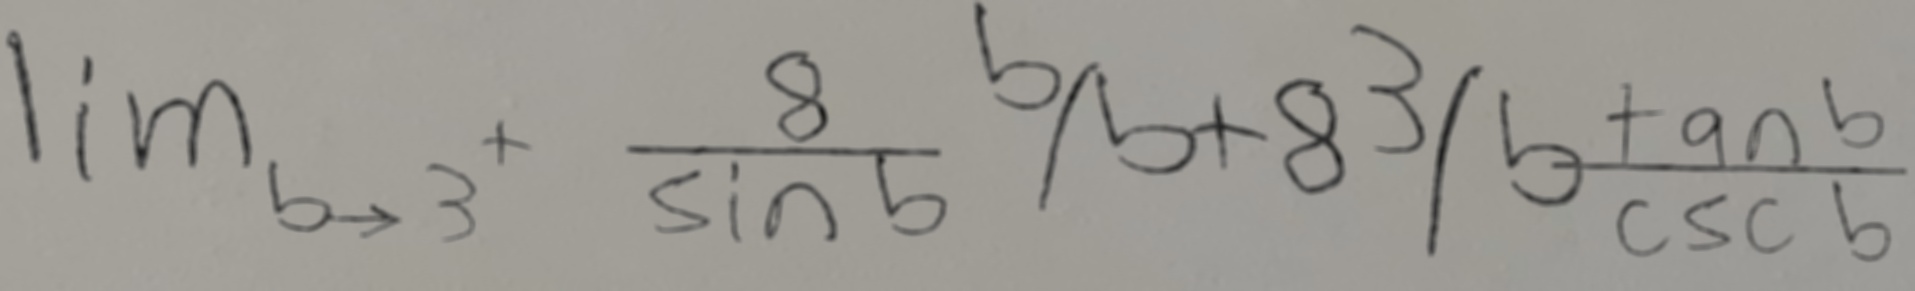 \lim_{b \to 3^+} \frac{8}{\sin b}^b / b + 8^3 / b \frac{\tan b}{\csc b}